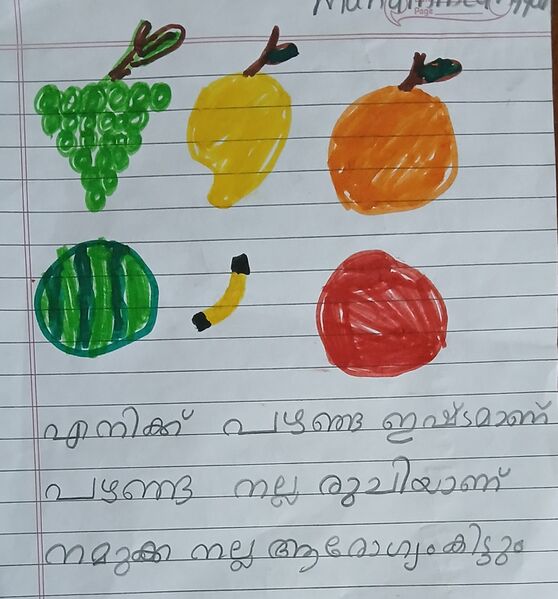 Page
എനിക്ക് പഴങ്ങ ഇഷ്ടമാണ്
പഴങ്ങെ നല്ല രുചിയാണ്
നമുക്ക നല്ല ആരോഗ്യംകിട്ടും